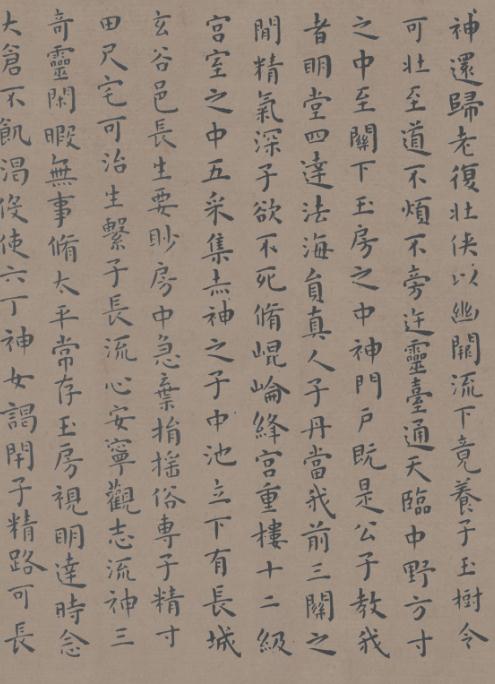 神還歸老復壯俠以幽關流下竟養子玉樹令
可壯至道不煩不旁迕靈臺通天臨中野方寸
之中至關下玉房之中神門戶既是公子教我
者明堂四達法海員真人子丹當我前三關之
間精氣深子欲不死脩崐崘絳宮重樓十二級
宮室之中五采集赤神之子中池立下有長城
玄谷邑長生要眇房中急棄捐搖俗專子精寸
田尺宅可治生繫子長流心安寧觀志流神三
奇靈閑暇無事脩太平常存玉房視明達時念
大倉不飢渴伇使六丁神女謁閇子精路可長